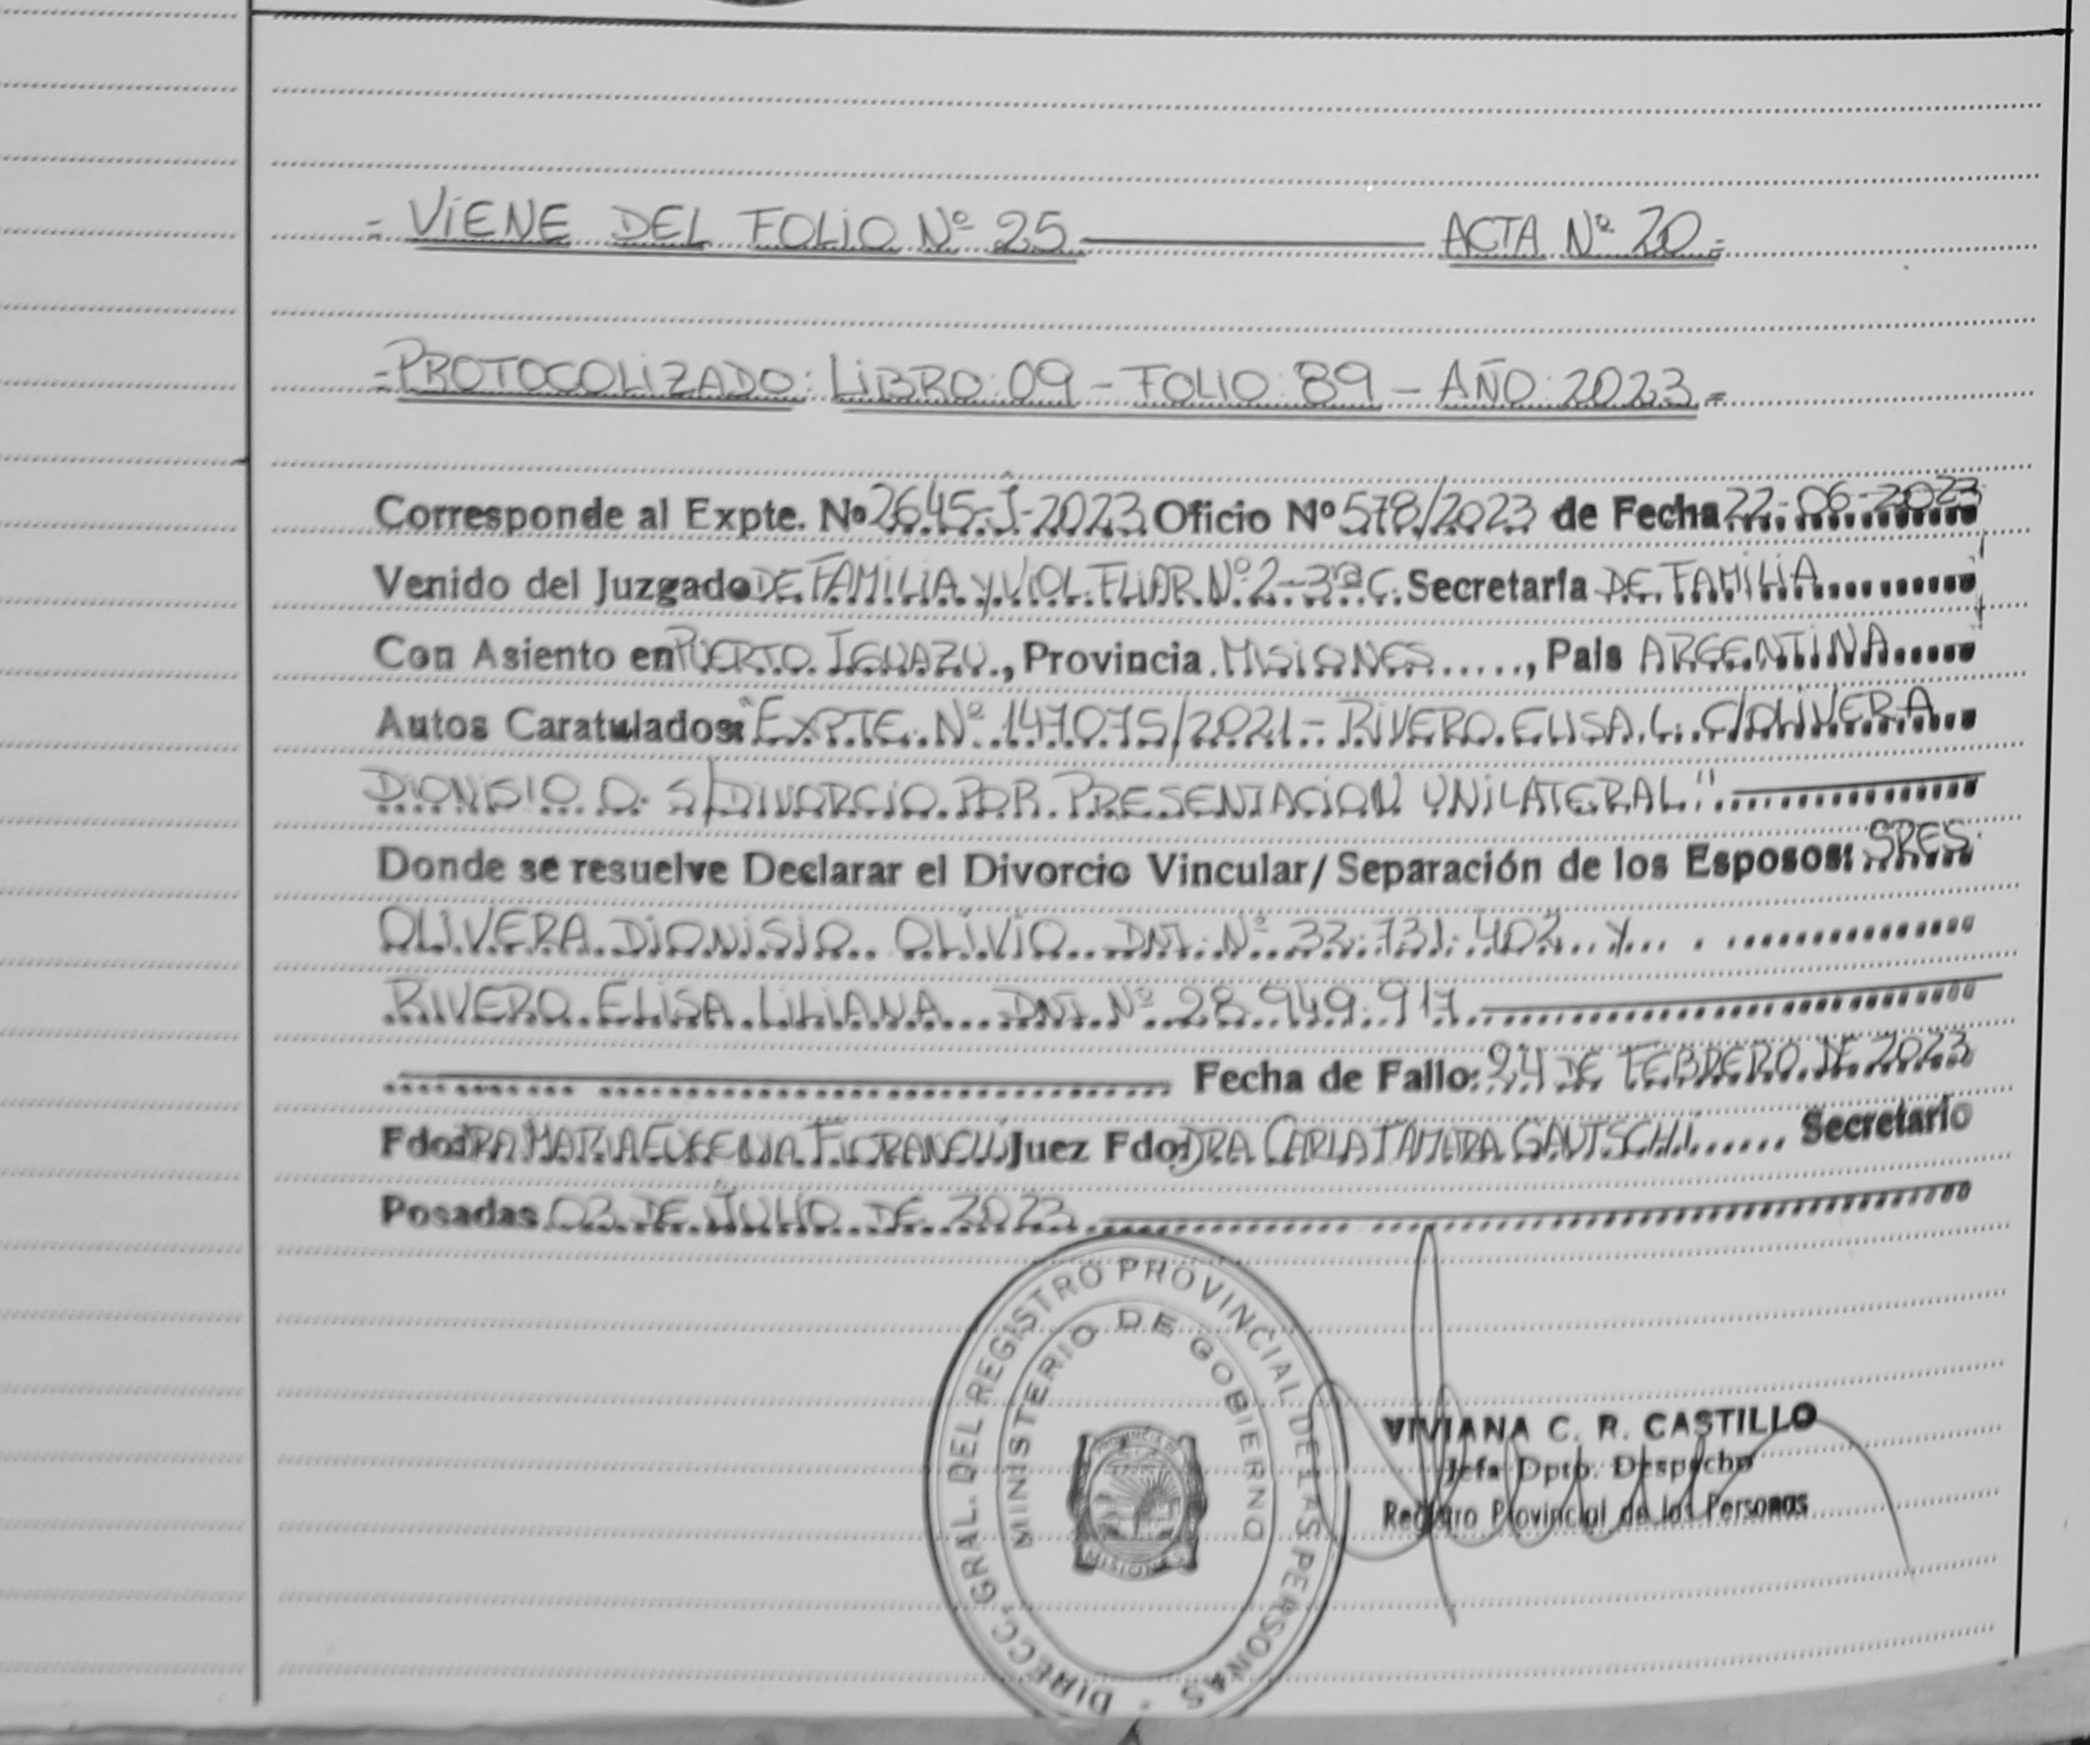 = VIENE DEL FOLIO Nº 25 ACTA Nº 20 =
= PROTOCOLIZADO: LIBRO: 09 - FOLIO: 89 - AÑO: 2023 =
Corresponde al Expte. Nº 2645-J-2023 Oficio Nº 578/2023 de Fecha 22-06-2023
Venido del Juzgado DE FAMILIA Y VIOL. FLIAR Nº 2-3ra C. Secretaría DE FAMILIA
Con Asiento en PUERTO IGUAZU, Provincia MISIONES, País ARGENTINA
Autos Caratulados: "EXPTE. Nº 147075/2021 - RIVERO ELISA L. C/OLIVERA
DIONISIO O. S/DIVORCIO POR PRESENTACION UNILATERAL"
Donde se resuelve Declarar el Divorcio Vincular/ Separación de los Esposos: SRES.
OLIVERA DIONISIO OLIVIO DNI. Nº 32.731.402 Y
RIVERO ELISA LILIANA DNI Nº 28.949.917
Fecha de Fallo: 24 DE FEBRERO DE 2023
Fdo: DRA MARIA EUGENIA FIORANELLI Juez Fdo: DRA CARLA TAMARA GAUTSCHI Secretario
Posadas 03 DE JULIO DE 2023
DIRECC. GRAL. DEL REGISTRO PROVINCIAL DE LAS PERSONAS -
MINISTERIO DE GOBIERNO
PROVINCIA DE
MISIONES
VIVIANA C. R. CASTILLO
Jefa Dpto. Despacho
Registro Provincial de las Personas